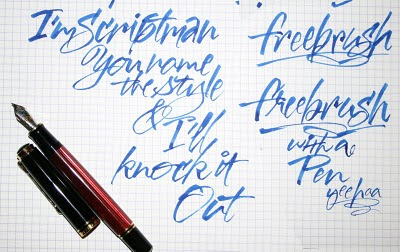 I'm Scriptman
You name
the style
&
I'll
knock it
Out
freebrush
freebrush
with a
Pen
yeehaa